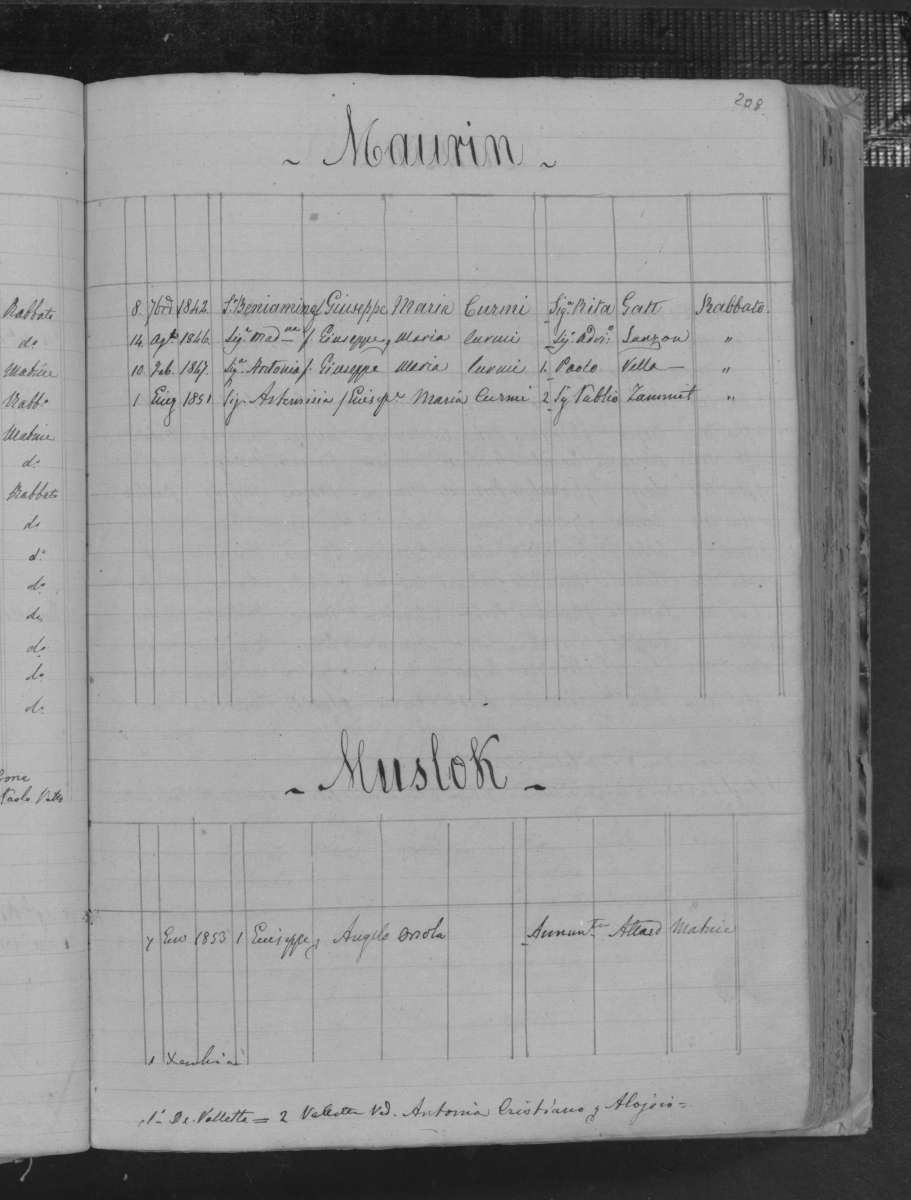 208
Rabbato
do
Matrice
Rabb.o
Matrice
d.o
Rabbato
do
d.o
do
do
do
do
d.o
Paolo Vella
- Maurin -
8 7bre 1842 Sr Beniamino f Giuseppe Maria Curmi Sigra Rita Gatt Rabbato.
14 Agto 1846 Sigr f Giuseppe Maria Curmi Sigr "
10 Feb. 1847. Sigra Antonia f. Giuseppe Maria Curmi 1. Paolo Vella - "
1 Giug 1851 Sigr f Giusepe Maria Curmi 2 Sig Publio Zammit "
- Muslok -
7 Giu 1853 1 Giuseppe Angelo Annunta Attard Matrice
1
1a De Valletta = 2 Valletta Ved. Antonia Cristiano Alojsio =